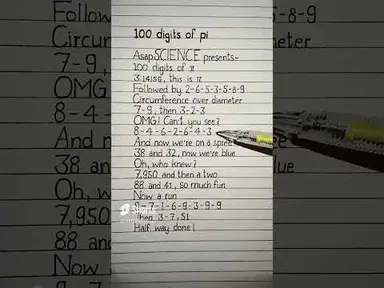 100 digits of pi
AsapSCIENCE presents-
100 digits of π
3.14159, this is π
Followed by 2-6-5-3-5-8-9
Circumference over diameter
7-9, then 3-2-3
OMG! Can't you see?
8-4-6-2-6-4-3
And now we're on a spree
38 and 32, now we're blue
Oh, who knew?
7,950 and then a two
88 and 41, so much fun
Now a run
9-7-1-6-9-3-9-9
Then 3-7, 51
Half way done!